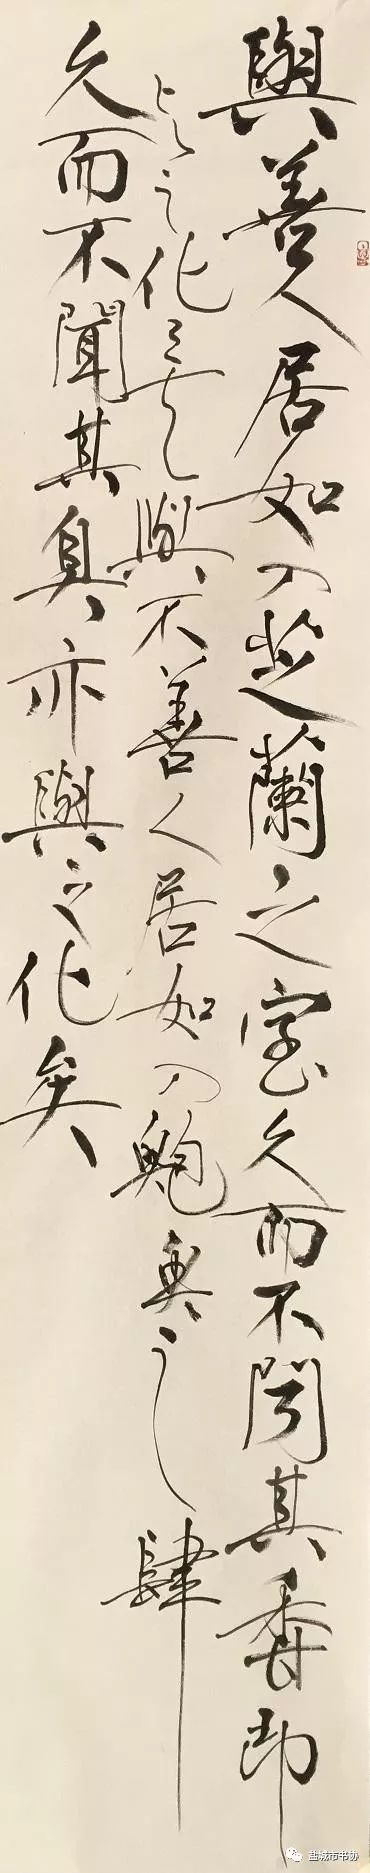 與善人居如入芝蘭之室久而不聞其香即
与之化矣與不善人居如入鮑魚之肆
久而不聞其臭亦與之化矣
盐城市书协